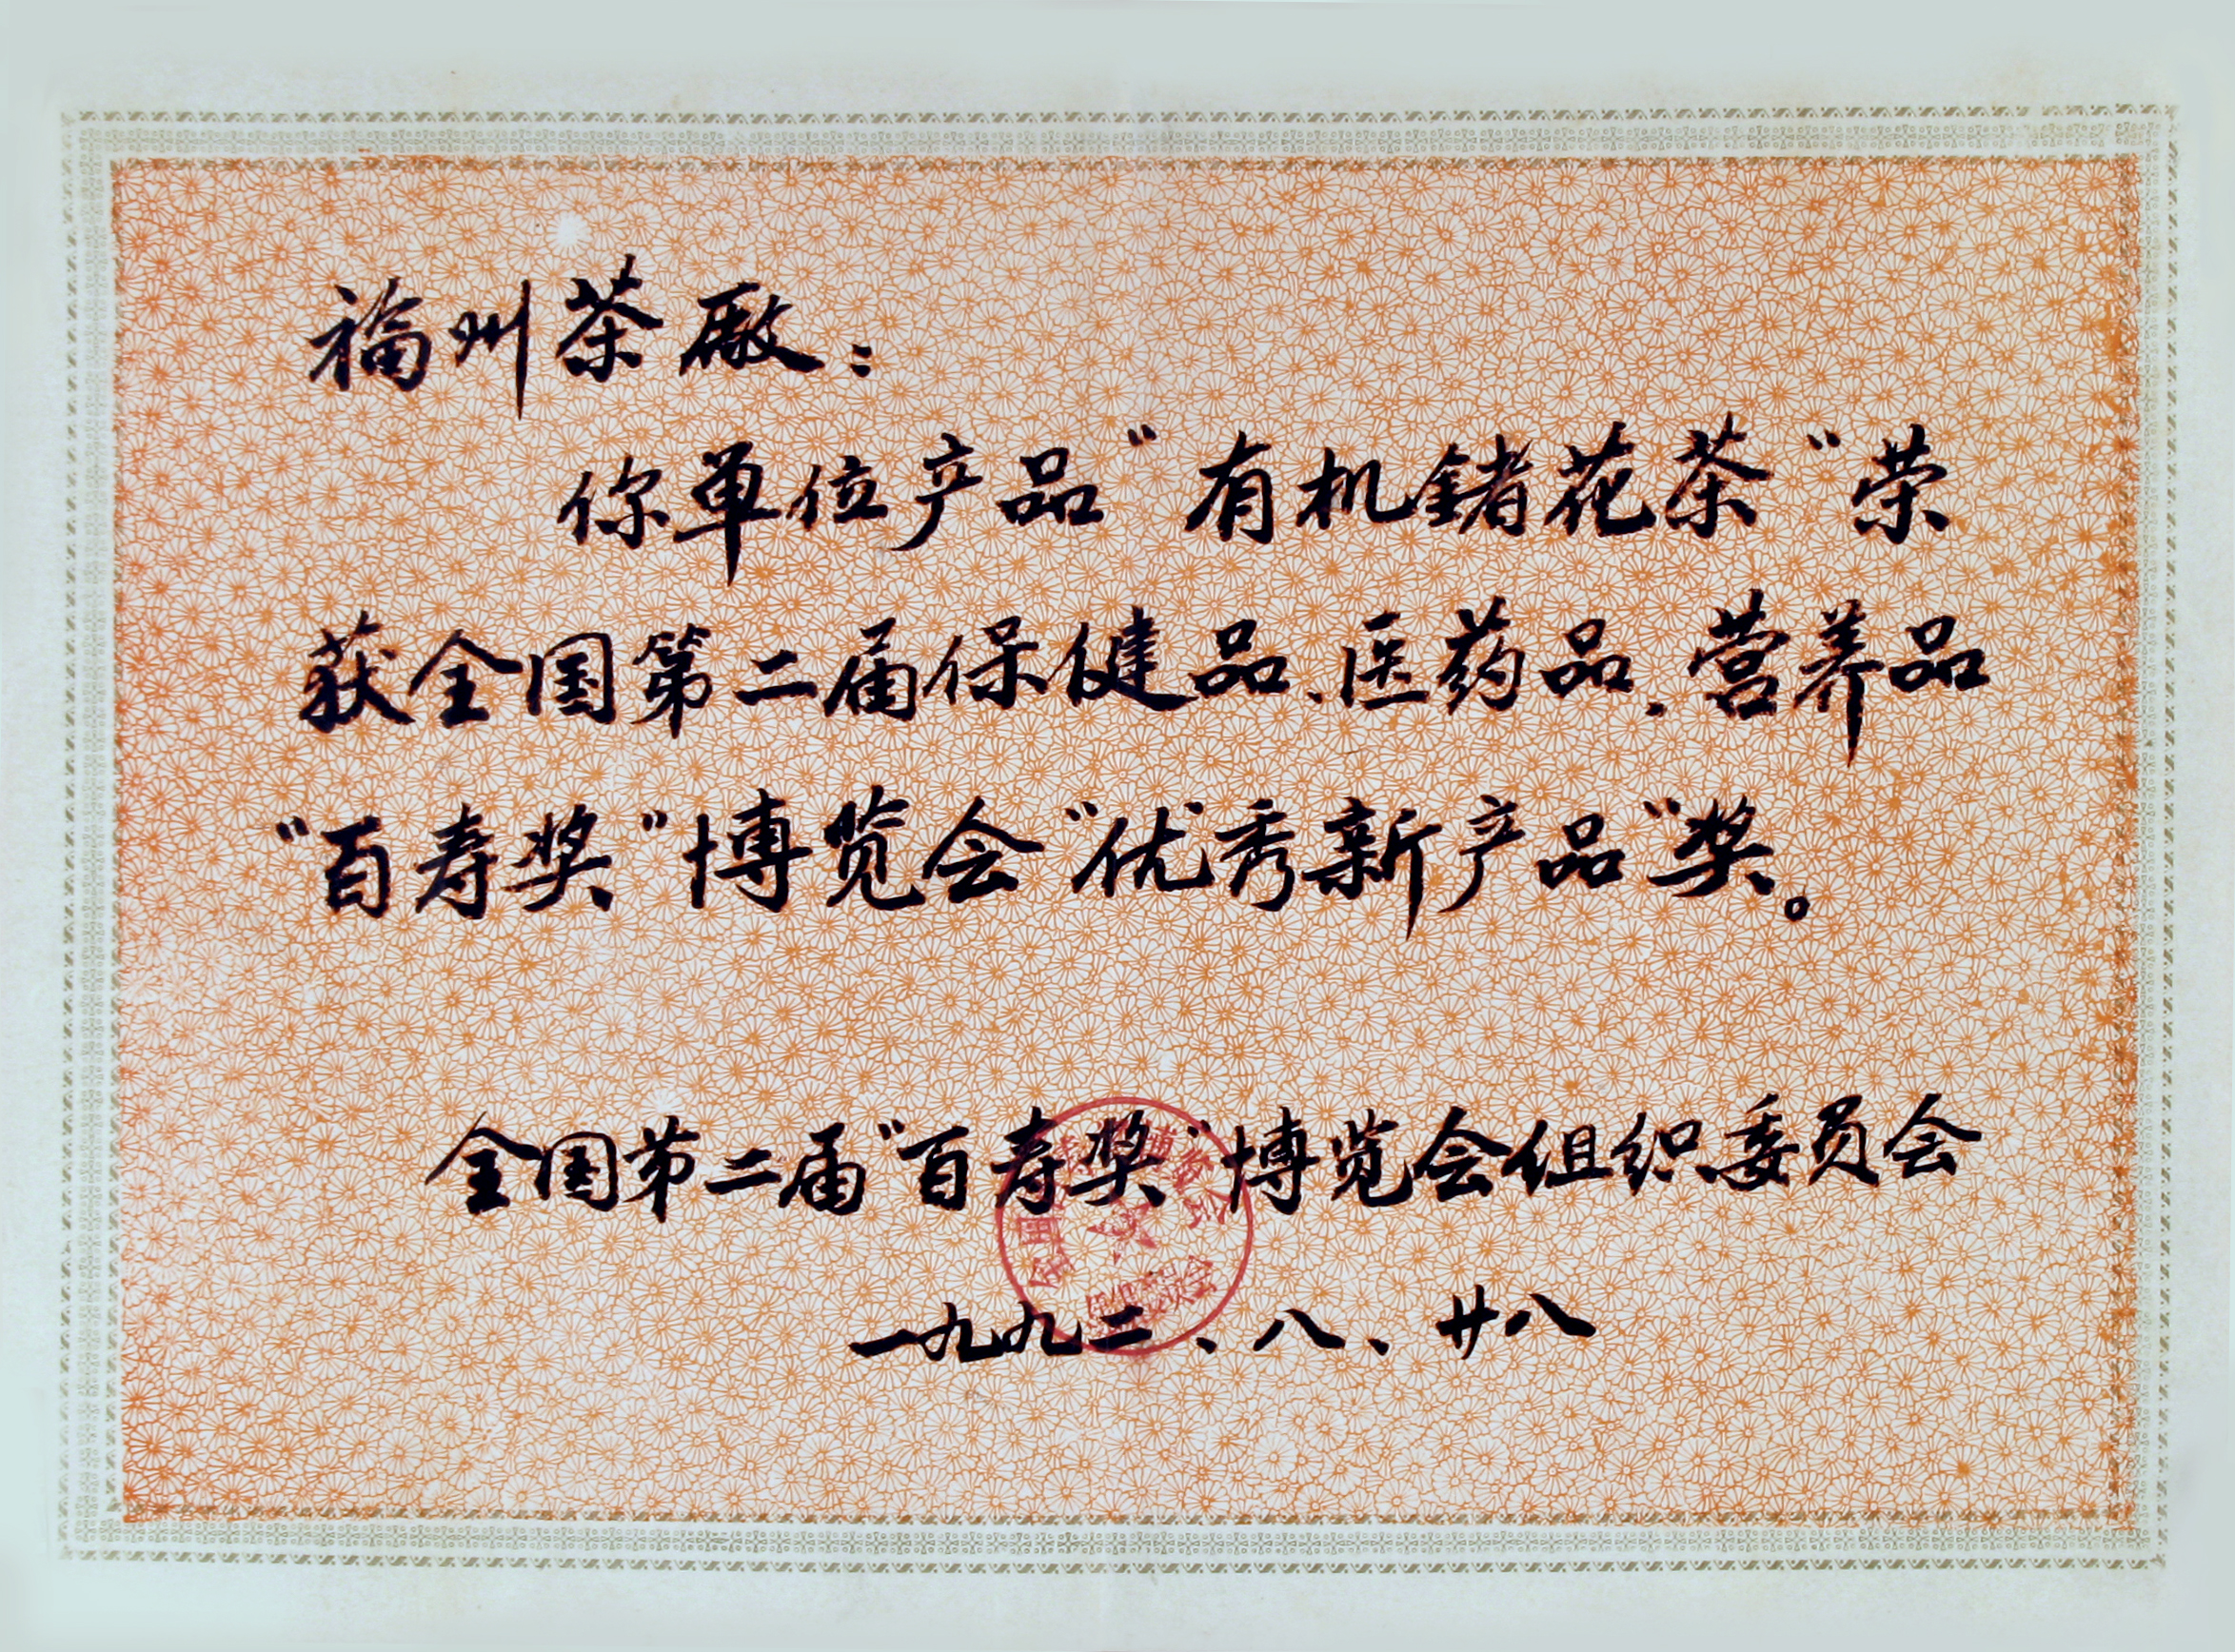 福州茶厰：
你单位产品“有机锗花茶”荣
获全国第二届保健品、医药品、营养品
“百寿奖”博览会“优秀新产品”奖。
全国第二届“百寿奖”博览会组织委员会
一九九二、八、廿八